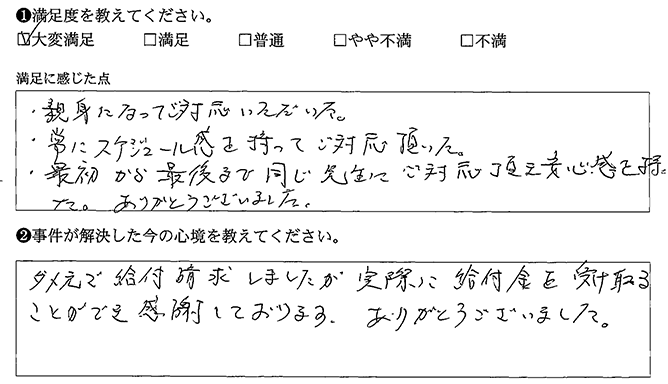 ❶満足度を教えてください。
☑大変満足 □満足 □普通 □やや不満 □不満
満足に感じた点
・親身になってご対応いただいた。
・常にスケジュール感を持ってご対応頂いた。
・最初から最後まで同じ先生にご対応頂え安心感を持
た。ありがとうございました。
❷事件が解決した今の心境を教えてください。
ダメ元で給付請求しましたが実際に給付金を受け取る
ことができ感謝しております。ありがとうございました。